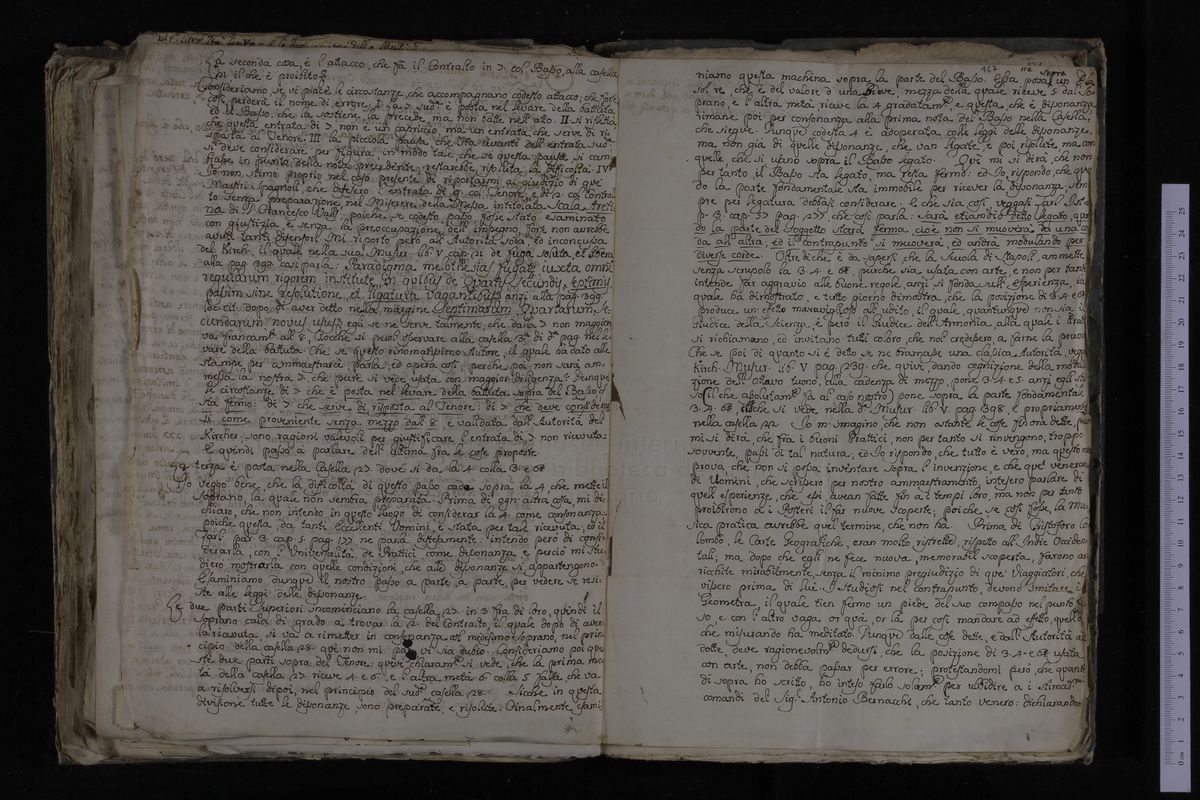 La seconda cosa, è l'attacco, che fà il Contralto in 7. col Basso, alla casella
21 il che è proibito.
Consideriamo, se vi piace le circostanze, che accompagnano codesto attacco; che forse
così perderà il nome di errore. I. La 7. sud.ª è posta nel levare della battuta,
ed il Basso, che la sostiene, la precede, ma non batte nell'atto. II si rifletta,
che questa entrata di 7. non è un capriccio ma un'entrata che serve di ri-
sposta al Tenore. III. la picciola pausa che sta avanti dell'entrata sud.ª
si deve considerare per figura in modo tale, che se questa pausa si cam-
biasse in punto della nota precedente, restarebbe risoluta la difficoltà. IV
Io non stimo proprio nel caso presente di riportarmi al giudizio di que'
Maestri Spagnoli, che difesero l'entrata di 9. col Tenore, e di 2. col Contral-
to senza preparazione, nel Miserere della Messa intitolata Scala Areti-
na di D. Francesco Vall; poiche se codesto passo fosse stato esaminato
con giustizia, e senza la preoccupazione dell'impegno, forse non avrebbe
avuti tanti difensori. Mi riporto però all'Autorità soda, ed inconcussa
del Kirch. il quale nella sua Musur. lib. V cap. 21. de fuga soluta, et libera
alla pag. 397 così parla: Paradigma melothesiæ fugatæ iuxta omnem
regularum rigorem institutæ, in quibus de Quartis, Secundis, Septimis
passim sine resolutione, et ligatura vagantibus anzi alla pag. 399
loc. cit. dopo di aver detto nella margine Septimarum, Quartarum, Se-
cundarum novus usus, egli se ne serve talmente, che dalla 7. non maggior
va francam.te all'8. Locche si può osservare alla casella 3.ª di d.ª pag. nel le-
vare della battuta. Che se questo rinomatissimo Autore, il quale ha dato alle
stampe per ammaestrare parla, ed opera così, perche poi non sarà am-
messa la nostra 7. che pure si vede usata con maggior diligenza? Dunque
le circostanze di 7. che è posta nel levare della battuta sopra del Basso che
sta fermo: di 7. che serve di risposta al Tenore: di 7. che deve considerar-
si come proveniente senza mezzo dall'8. e validata dall'Autorità del
Kircher sono ragioni valevoli per giustificare l'entrata di 7. non ricevuta:
E quindi passo a parlare dell'ultima fra le cose proposte.
La terza è posta nella Casella 27. dove si da la 4. colla 3. e 6.
Io veggo bene, che la difficoltà di questo passo cade sopra la 4. che mette il
Soprano, la quale non sembra preparata. Prima di ogn'altra cosa mi di-
chiaro, che non intendo in questo luogo di considerar la 4. come consonanza;
poiche questa, da tanti Eccellenti Uomini, è stata per tale ricevuta, ed il
Zarl. par. 3. cap. 5. pag. 177. ne parla distesamente: intendo però di consi-
derarla, con l'Universalità de' Prattici, come dissonanza, e perciò mi stu-
diero mostrarla con quelle condizioni, che alle dissonanze si appartengono.
Esaminiamo dunque il nostro passo a parte, a parte, per vedere se resi-
ste alle leggi delle dissonanze.
Le due parti superiori incominciano la casella 27. in 3. fra di loro, quindi il
Soprano cala di grado a trovar la 2. del Contralto, il quale dopo di aver-
la ricevuta, si va a rimetter in consonanza col medesimo soprano, nel prin-
cipio della casella 28. qui non mi par vi sia dubio. Consideriamo poi que-
ste due parti sopra del Tenore: quivi chiaram.te si vede, che la prima me-
tà della casella 27. riceve 4. e 6. e l'altra metà 6. colla 5. falsa che va
a risolversi dipoi, nel principio del sud.ª casella 28. Sicche in questa
divisione tutte le dissonanze, sono preparate, e risolute. Finalmente esami-
167 112
niamo questa machina sopra la parte del Basso. Essa posa sopra un Ela
sol re, che è del valore d'una Breve, mezza della quale riceve 5. dal So-
prano, e l'altra metà riceve la 4. gradatam.te e questa, che è dissonanza
rimane poi per consonanza alla prima nota del Basso nella Casella,
che siegue. Dunque codesta 4. è adoperata colle leggi delle dissonanze,
ma non già di quelle dissonanze, che van legate, e poi risolute, ma con
quelle che si usano sopra il Basso legato. Qui mi si dirà, che non
per tanto, il Basso sta legato, ma resta fermo: ed Io rispondo, che quan-
do la parte fondamentale sta immobile per ricever la dissonanza, sem-
pre per legatura debbasi considerare. E che sia così, veggasi Zarl. Ist.
p. 3. cap. 57. pag. 277. che così parla: Sarà etiandio detto legato, quan-
do la parte del Soggetto starà ferma, cioè non si muoverà da una cor-
da all'altra; ed il contrapunto si muoverà, ed andrà modulando per
diverse corde. Oltre di che è da sapersi, che la Scuola di Napoli, ammette
senza scrupolo la 3. 4. e 6. purche sia usata con arte, e non per tanto
intende far aggravio alle buone regole, anzi si fonda sull'esperienza, la
quale ha dimostrato, e tutto giorno dimostra, che la posizione di 3. 4. e 6.
produce un effetto maraviglioso all'udito, il quale, quantunque non sia il
Giudice della Scienza, è però il Giudice dell'Armonia, alla quale i Prat.
si richiamano, ed invitano tutti coloro, che nol credessero, a farne la pruova.
Che se poi di quanto si è detto se ne bramasse una classica Autorità, veggasi
Kirch. Musur. lib. V pag. 239. che quivi, dando cognizione della modula-
zione dell'Ottavo tuono, alla cadenza di mezzo, pone 3. 4. e 5. anzi egli stes-
so (il che assolutam.te fa al caso nostro) pone sopra la parte fondamentale
3. 4. 6., il che si vede nella d.ª Musur. lib. V. pag. 398, e propriamente
nella casella 22. Io m'imagino, che non ostante le cose finora dette, pur
mi si dirà, che fra i buoni Prattici, non per tanto si rinvengono, troppo
sovente, passi di tal natura; ed Io rispondo, che tutto è vero, ma questo non
prova, che non si possa inventare sopra l'invenzione, e che que' venerandi
di Uomini, che scrissero per nostro ammaestramento, intesero parlare di
quell'esperienze, che essi avean fatte fin a' tempi loro, ma non per tanto
proibirono a i Posteri il far nuove scoperte; poiche se così fosse, la Mu-
sica pratica avrebbe quel termine, che non ha. Prima di Cristoforo Co-
lombo, le Carte Geografiche, eran molto ristrette, rispetto all'Indie Occiden-
tali; ma dopo che egli ne fece nuova, memorabil scoperta, furono ar-
ricchite mirabilmente, senza il minimo pregiudizio di que' Viaggiatori, che
vissero prima di lui. I Studiosi nel contrapunto, devono imitare il
Geometra, il quale tien fermo un piede del suo compasso nel punto fis-
so, e con l'altro vaga or quà, or là, per così mandare ad effetto, quello
che misurando ha meditato. Dunque dalle cose dette, e dall'Autorità ad-
dotte, deve ragionevolm.te dedursi, che la posizione di 3. 4. e 6. usata
con arte, non debba passar per errore; protestandomi però, che quanto
di sopra ho scritto, ho inteso farlo solam.te per ubbidire a i stimatis.mi
comandi del Sig.r Antonio Bernacchi, che tanto venero: dichiarando